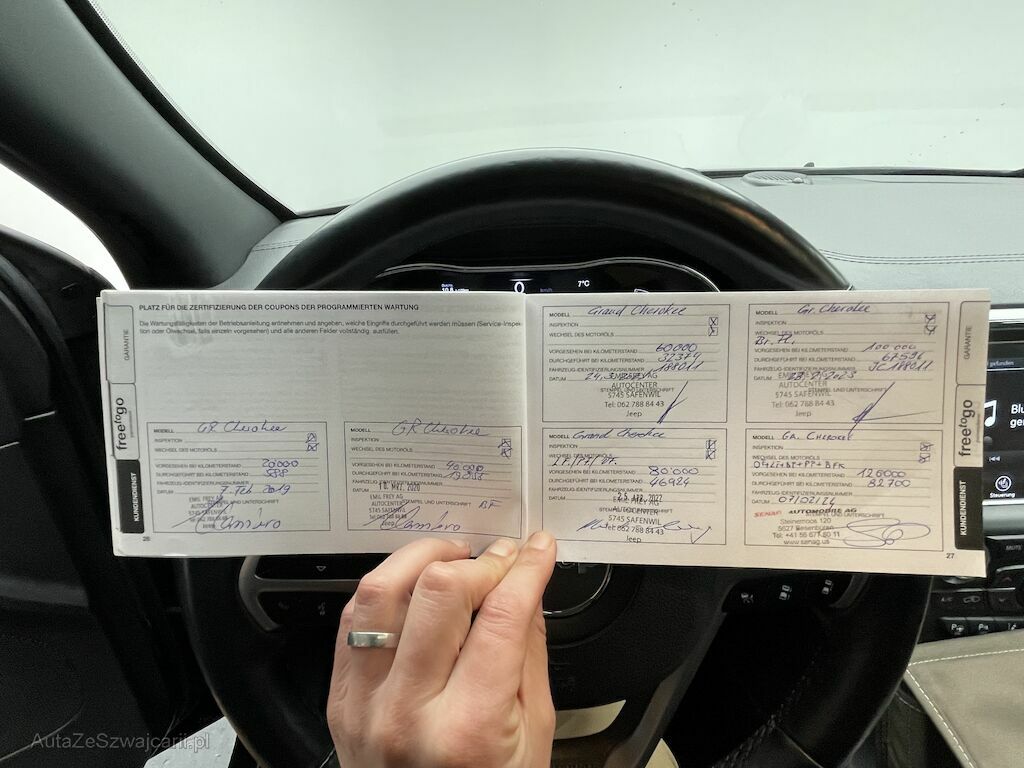 7°C
0
PLATZ FÜR DIE ZERTIFIZIERUNG DER COUPONS DER PROGRAMMIERTEN WARTUNG
Die Wartungsfälligkeiten der Betriebsanleitung entnehmen und angeben, welche Eingriffe durchgeführt werden müssen (Service-Inspek-
tion oder Ölwechsel, falls einzeln vorgesehen) und alle anderen Felder vollständig ausfüllen.
GARANTIE
free to go
KUNDENDIENST
MODELL GR Cherokee
INSPEKTION
WECHSEL DES MOTORÖLS
VORGESEHEN BEI KILOMETERSTAND 20'000
DURCHGEFÜHRT BEI KILOMETERSTAND 588
FAHRZEUG-IDENTIFIZIERUNGSNUMMER
DATUM 7. Feb 2019
EMIL FREY AG
AUTOCENTER
5745 SAFENWIL
Jeep
26
MODELL GR Cherokee
INSPEKTION
WECHSEL DES MOTORÖLS
VORGESEHEN BEI KILOMETERSTAND 40'000
DURCHGEFÜHRT BEI KILOMETERSTAND
FAHRZEUG-IDENTIFIZIERUNGSNUMMER
DATUM 10. MRZ. 2020
EMIL FREY AG
AUTOCENTER
5745 SAFENWIL
Jeep
MODELL Grand Cherokee
INSPEKTION
WECHSEL DES MOTORÖLS
VORGESEHEN BEI KILOMETERSTAND 60'000
DURCHGEFÜHRT BEI KILOMETERSTAND 32374
FAHRZEUG-IDENTIFIZIERUNGSNUMMER 188011
DATUM
EMIL FREY AG
AUTOCENTER
STEMPEL UND UNTERSCHRIFT
5745 SAFENWIL
Tel: 062 788 84 43
Jeep
MODELL Gr. Cherokee
INSPEKTION
WECHSEL DES MOTORÖLS
Br. Fl.
VORGESEHEN BEI KILOMETERSTAND 100'000
DURCHGEFÜHRT BEI KILOMETERSTAND 67596
FAHRZEUG-IDENTIFIZIERUNGSNUMMER JC188011
DATUM
AUTOCENTER
STEMPEL UND UNTERSCHRIFT
5745 SAFENWIL
Tel: 062 788 84 43
Jeep
MODELL Grand Cherokee
INSPEKTION
WECHSEL DES MOTORÖLS
VORGESEHEN BEI KILOMETERSTAND 80'000
DURCHGEFÜHRT BEI KILOMETERSTAND 46924
FAHRZEUG-IDENTIFIZIERUNGSNUMMER
DATUM
EMIL FREY AG
AUTOCENTER
5745 SAFENWIL
Tel: 062 788 84 43
Jeep
MODELL GR. CHEROKEE
INSPEKTION
WECHSEL DES MOTORÖLS
VORGESEHEN BEI KILOMETERSTAND 120000
DURCHGEFÜHRT BEI KILOMETERSTAND 82700
FAHRZEUG-IDENTIFIZIERUNGSNUMMER
DATUM 07/02/24
SENAG AUTOMOBILE AG
STEMPEL UND UNTERSCHRIFT
Steinemoos 120
Tel: +41 56 677 80 11
www.senag.us
27
GARANTIE
free to go
KUNDENDIENST
gefunden
Blu
ger
Steuerung
MUTE
AutaZeSzwajcarii.pl